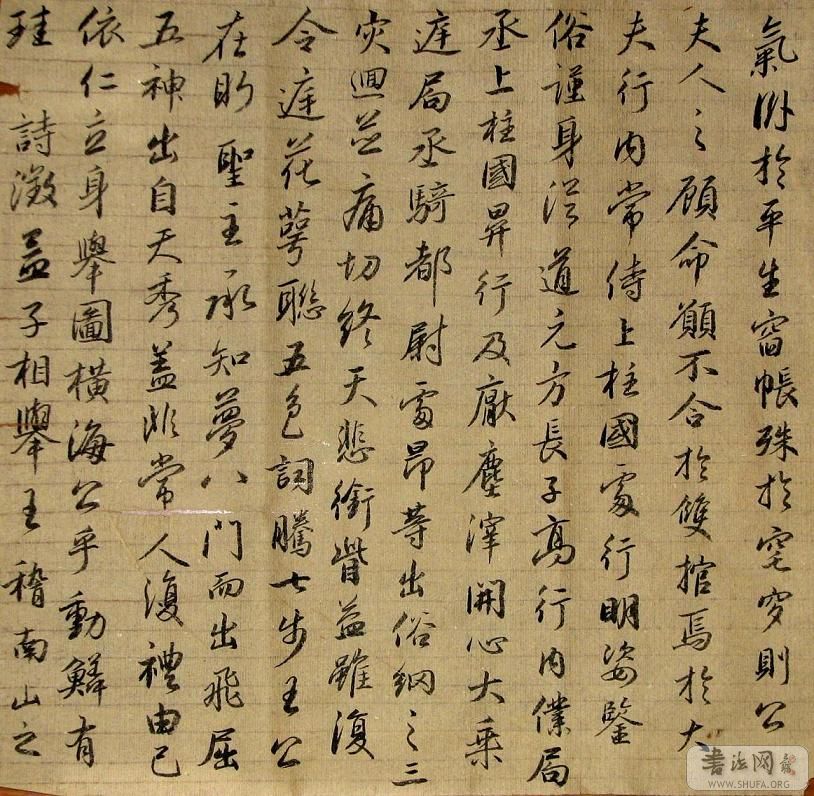 氣附於平生窗帳殊於窀穸則公
夫人之顧命願不合於雙棺焉於大
夫行內常侍上柱國處行明姿鑒
俗謹身從道元方長子高行內僕局
丞上柱國昇行及厭塵滓開心大乘
建局丞騎都尉處昂等出俗網之三
灾迴並痛切終天悲銜訾益雖復
令建花萼聯五色詞騰七步王公
在昀 聖主承知夢八門而出飛屈
五神出自天秀蓋非常人復禮由己
依仁立身舉圖橫海公乎動鱗有
珪 詩激益子相舉王稽南山之
書法网
WWW.SHUFA.ORG